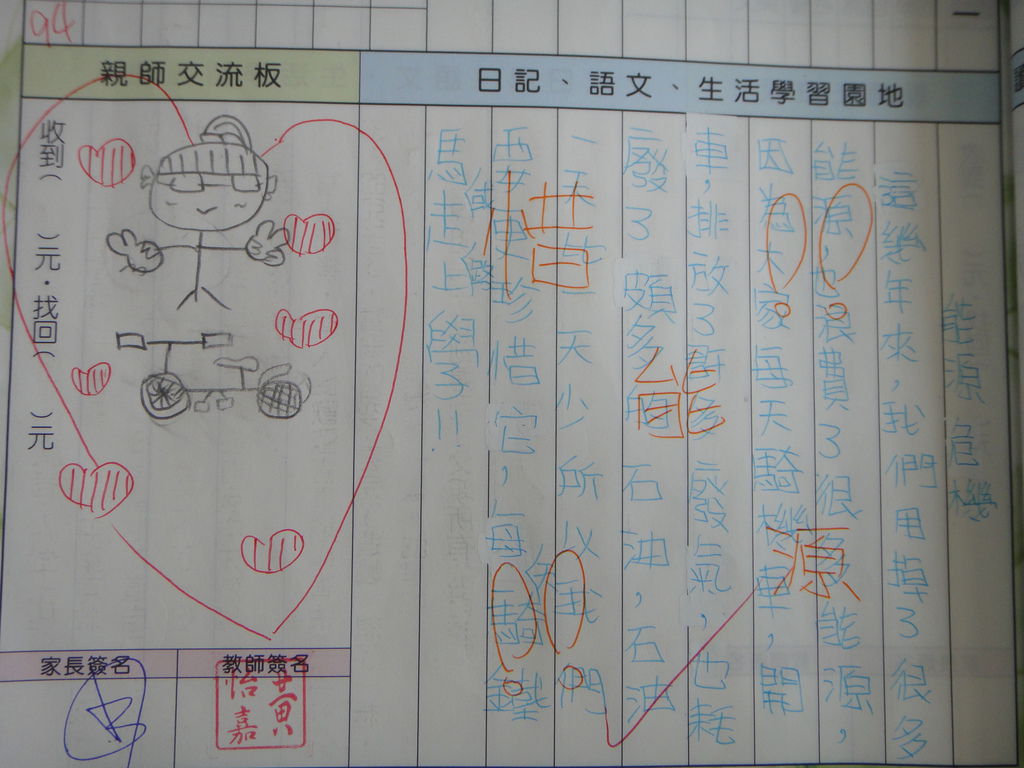 94
一
親師交流板
日記、語文、生活學習園地
能源危機
這幾年來，我們用掉了很多
能源，也浪費了很多能源，
因為大家每天騎機車，開
車，排放了許多廢氣，也耗
廢了頗多的石油，石油
一天比一天少所以我們
要更珍惜它，每
騎鐵
馬走上學了!!
惜
能
源
收到( )元・找回( )元
家長簽名
教師簽名
黃怡嘉